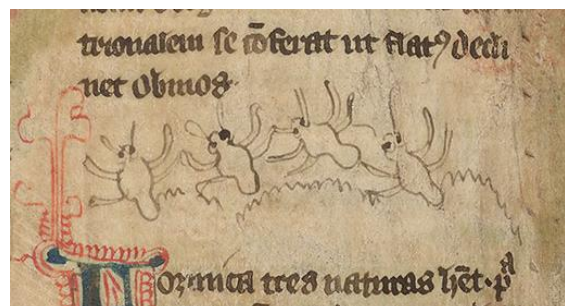 trionalem se cōferat ut flatꝰ decli
net obuios·
ormica tres naturas hēt· pᵃ